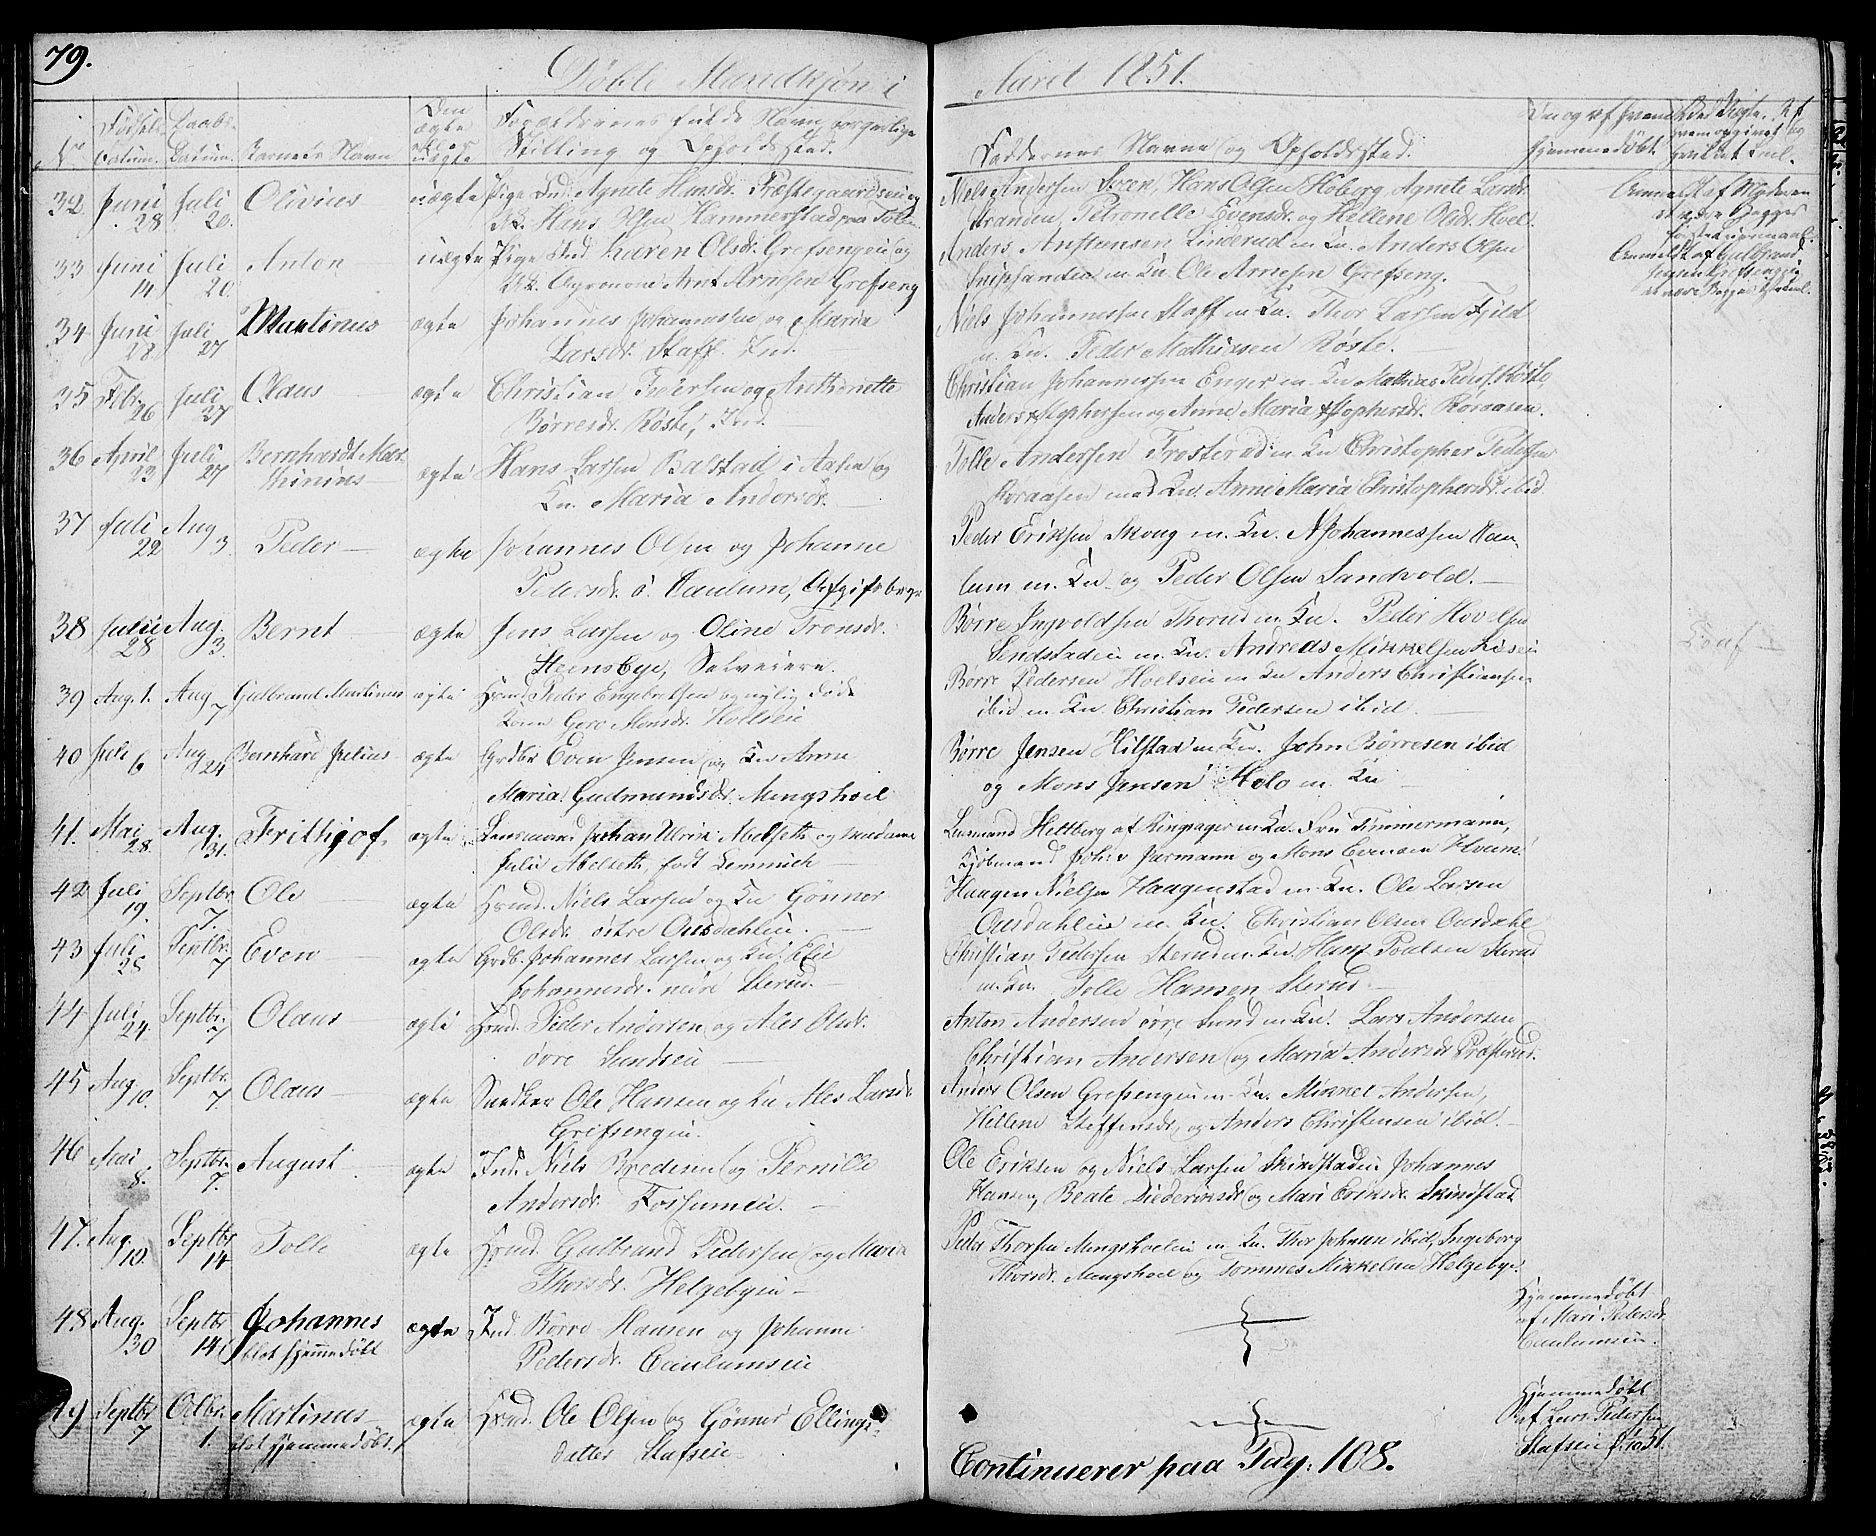 79.
Døbte Mandkjøn i Aaret 1851.
No Fødsels Datum. Daabs Datum. Barnets Navn Den ægte eller uægte Forældrenes fulde Navn, borgerlige Stilling og Opholdssted. Faddernes Navne og Opholdssted. hjemmedøbt.
32 Juni 28 Juli 20. Olivius uægte Pige Ind. Agnete Hansdr. Præstegaardseiet og
Hans Olsen Hammerstad paa Toten
Niels Andersen Hans Olsen Hoberg, Agnete Larsdr
Stranden, Petronelle Evensdr. og Hellene Olsdr. Hoel.
Anmeldt af Moderen at være Begges første Leiermaal.
33 Juni 14 Juli 20. Anton uægte Pige Ind Karen Olsdr. Grefsengeie og
Agronom Arnt Arnesen Grefseng
Anders Anstensen Linderud m Kn. Anders Olsen
m Kn Ole Arnesen Grefseng.
Anmeldt af Gulbrand
34 Juni 28 Juli 27 Martinus ægte Johannes Johannessen og Maria
Larsdr. Staff. Ind.
Niels Johannessen Staff m Kn. Thor Larsen Fjeld
m. Kn. Peder Mathiasen Røste.
35 Febr. 26 Juli 27 Olaus ægte Christian Pedersen og Anthonette
Børresdr. Røste, Ind.
Christian Johannessen Enger m Kn Mathias Peders. Røste
Anders Xstophersen og Anne Maria Xstophersdr. Roraasen.
36 April 23 Juli 27 Bernhardt Mar-
thinius ægte Hans Larsen Balstad i Aasen og
Kn. Maria Andersdr.
Tolle Andersen Frosterud m Kn Christopher Pedersen
Roraasen med Kn. Anne Maria Christophersdr. ibid
37 Juli 22 Aug 3. Peder ægte Johannes Olsen og Johanne
Pedersdr. ø. Caulum,
Peder Eriksen Skoug m. Kn. N Johannessen Kau-
lum m. Kn. og Peder Olsen Sandvold.
38 Julii 28 Aug. 3. Bernt ægte Jens Larsen og Oline Tronsdr.
Heensbye, Selveiere.
Børre Ingvoldsen Thorud m Kn. Peder Hovelsen
Sendstadeie m. Kn. Andreas Mikkelsen
39 Aug. 1. Aug 7 Gulbrand Martinus ægte Hmd. Peder Engebretsen og nylig døde
Kone Goro Monsdr. Hoelseie
Børre Pedersen Hoelseie m Kn Anders Christiansen
ibid m. Kn. Christian Pedersen ibid.
40 Juli 6 Aug 24 Bernhard Julius ægte Grdbr Even Jensen og Kn Anne
Maria Gudmundsdr. Mengshoel
Børre Jensen Hilstad m Kn. John Børresen ibid
og Mons Jensen Holo m. Kn
41. Mai 28. Aug. 31. Frithjof ægte Lensmand Johan Ulrik Abelseth og Madame
Juli Abelseth, født Lemmich
Lensmand Heltberg af Ringsager m Kn. Fru Timmermann,
Kjøbmand Jarmann og Mons Evensen Hveem
42 Juli 19. Septbr. 7. Ole ægte Hmd. Niels Larsen og Kn Gønner
Olsdr. østre Ousdahlen.
Haagen Nielsen Haagenstad m. Kn. Ole Larsen
Ousdahlen m. Kn. Christian Olsen Ousdahl
43 Juli 28 Septbr. 7 Even ægte Grdb. Johannes Larsen og Kn. Elie
Johannesdr. nedre Sterud.
Christian Pedersen Sterud m. Kn. Hans Poulsen Sterud
m. Kn. Tolle Hansen Sterud
44 Juli 24. Septbr. 7 Olaus ægte Hmd. Peder Andersen og Ales Olsdr.
øvre Sundseie
Anton Andersen øvre Sund m Kn. Lars Andersen
Christian Andersen og Maria Andersdr
45 Aug 10. Septbr. 7. Olaus ægte Snedker Ole Hansen og Kn Ales Larsdr
Grefsengeie.
Anders Olsen Grefsengeie m. Kn. Mikkel Andersen,
Hellene Steffensdr. og Anders Christensen ibid.
46 Mai 8. Septbr. 7. August ægte Ind. Niels Bredesen og Pernille
Andersdr. Fossumeie.
Ole Eriksen og Niels Larsen Skindstadeie Johannes
Hansen, Beate Diederiksdr og Mari Eriksdr. Skindstad
47. Aug. 10. Septbr 14 Tolle ægte Hmd. Gulbrand Pedersen og Maria
Thorsdr. Helgebyeie
Peder Thorsen Mengshoelei m Kn. Thor Johnsen ibid, Ingeborg
Thorsdr. Mengshoel og Tommes Mikkelsen Helgebye.
48. Aug. 30 Septbr 14 Johannes
blot hjemmedøbt ægte Ind. Børre Hansen og Johanne
Pedersdr. Caulumseie
Hjemmedøbt
af Mari Pedersdr
Caulumseie.
49 Septbr 7 Octbr. 1. Martinus
blot hjemmedøbt. ægte Hmd. Ole Olsen og Gønner Ellings-
datter Stafseie
Hjemmedøbt
af Lars Pedersen
Stafseie
Continuerer paa Pag: 108.